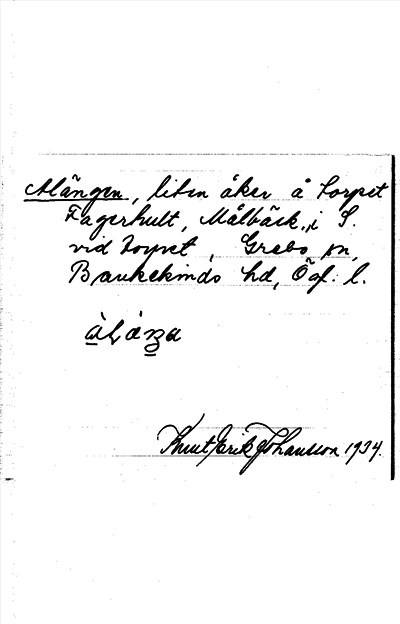 Alängen, liten åker å torpet
Fagerhult, Målbäck, i S.
vid torpet, Grebo sn,
Bankekinds hd, Ög. l.
Knut Erik Johansson 1934.